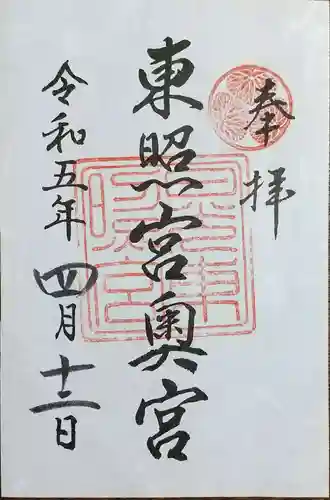 奉拝
東照宮奥宮
令和五年四月十二日